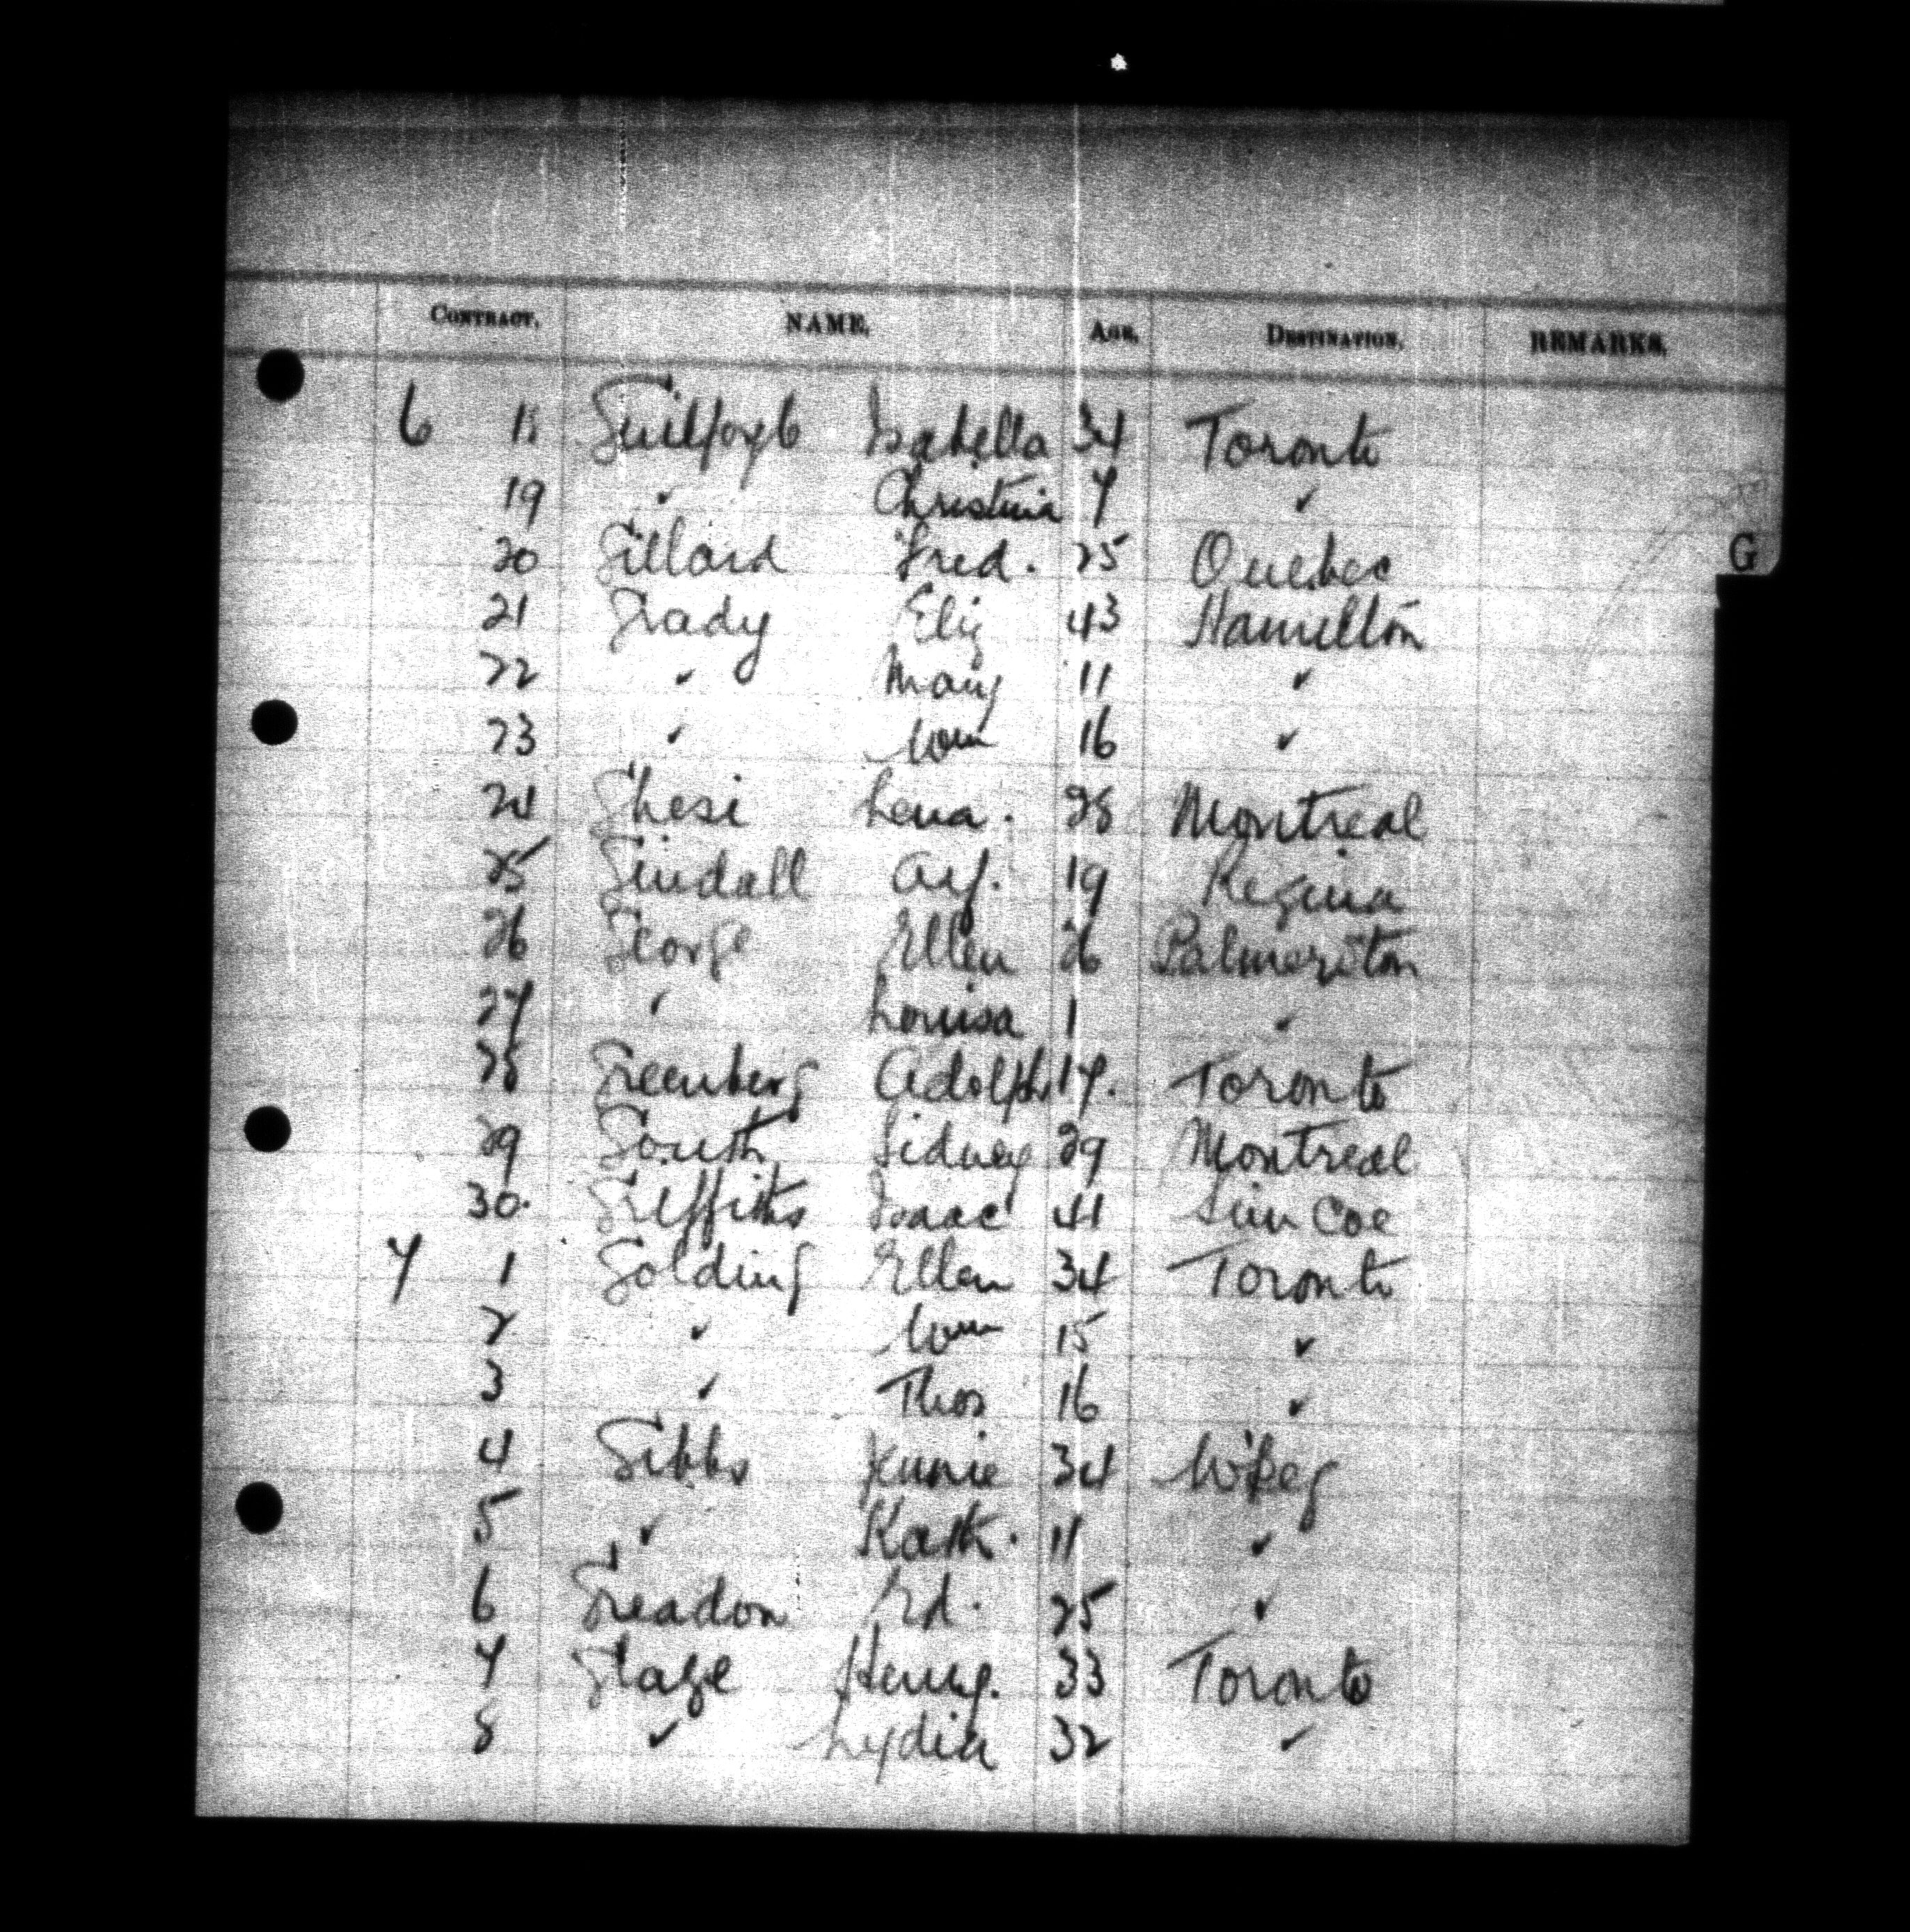 CONTRACT. NAME. AGE. DESTINATION. REMARKS.
6 18 Guilfoyle Isabella 34 Toronto
19 ✓ Christina 7 ✓
20 Gillard Fred. 25 Quebec
G
21 Grady Eliz 43 Hamilton
22 ✓ Mary 11 ✓
23 ✓ Wm 16 ✓
24 Ghesi Lena. 28 Montreal
25 Gindall Alf. 19 Regina
26 George Ellen 26 Palmerston
27 ✓ Louisa 1 ✓
28 Greenberg Adolph 17. Toronto
29 Sidney 29 Montreal
30. Griffiths Isaac 41 Sim Coe
7 1 Golding Ellen 34 Toronto
2 ✓ Wm 15 ✓
3 ✓ Thos 16 ✓
4 Gibbs Jennie 34 W'Peg
5 ✓ Kath. 11 ✓
6 Greadon Ed. 25 ✓
7 Glaze Henry. 33 Toronto
8 ✓ Lydia 32 ✓